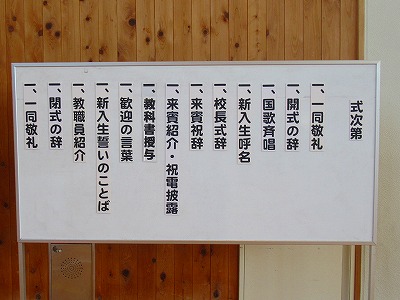 式次第
一、一同敬礼
一、開式の辞
一、国歌斉唱
一、新入生呼名
一、校長式辞
一、来賓祝辞
一、来賓紹介・祝電披露
一、教科書授与
一、歓迎の言葉
一、新入生誓いのことば
一、教職員紹介
一、閉式の辞
一、一同敬礼